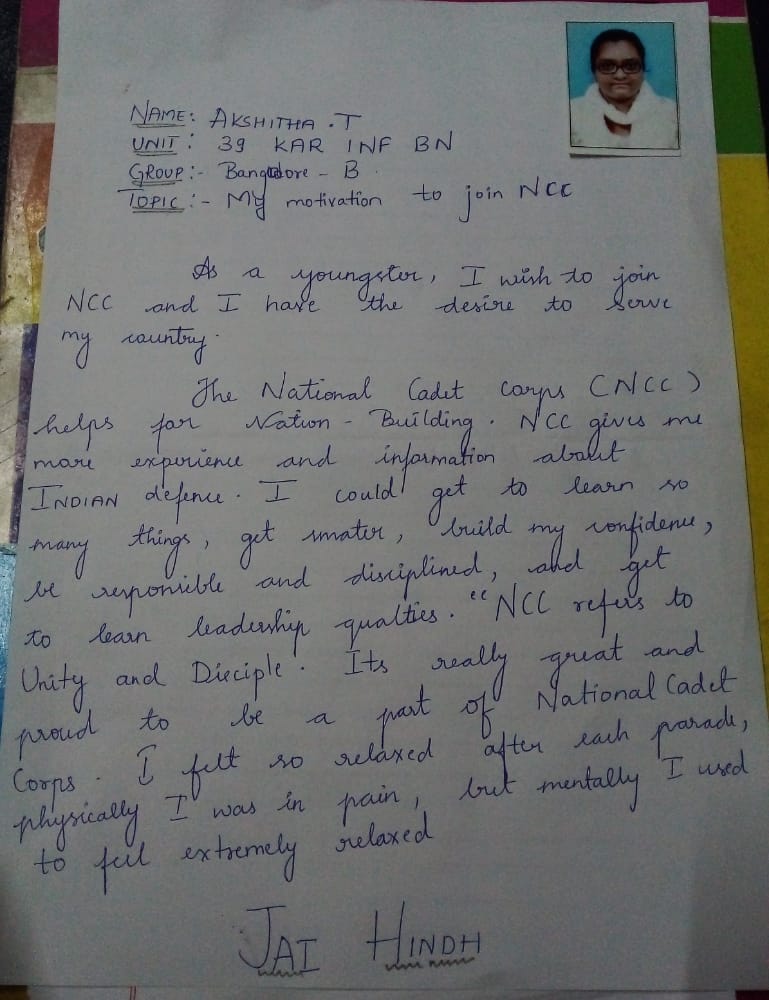 NAME: AKSHITHA .T
UNIT: 39 KAR INF BN
GROUP:- Bangalore - B
TOPIC:- My motivation to join NCC
As a youngster, I wish to join
NCC and I have the desire to serve
my country.
The National Cadet corps (NCC)
helps for Nation - Building. NCC gives me
more experience and information about
INDIAN defence. I could get to learn so
many things, get smater, build my confidence,
be responsible and disciplined, and get
to learn leadership qualties. "NCC refers to
Unity and Dieciple. Its really great and
proud to be a part of National Cadet
Corps. I felt so relaxed after each parade,
physically I was in pain, but mentally I used
to feel extremely relaxed
JAI HINDH